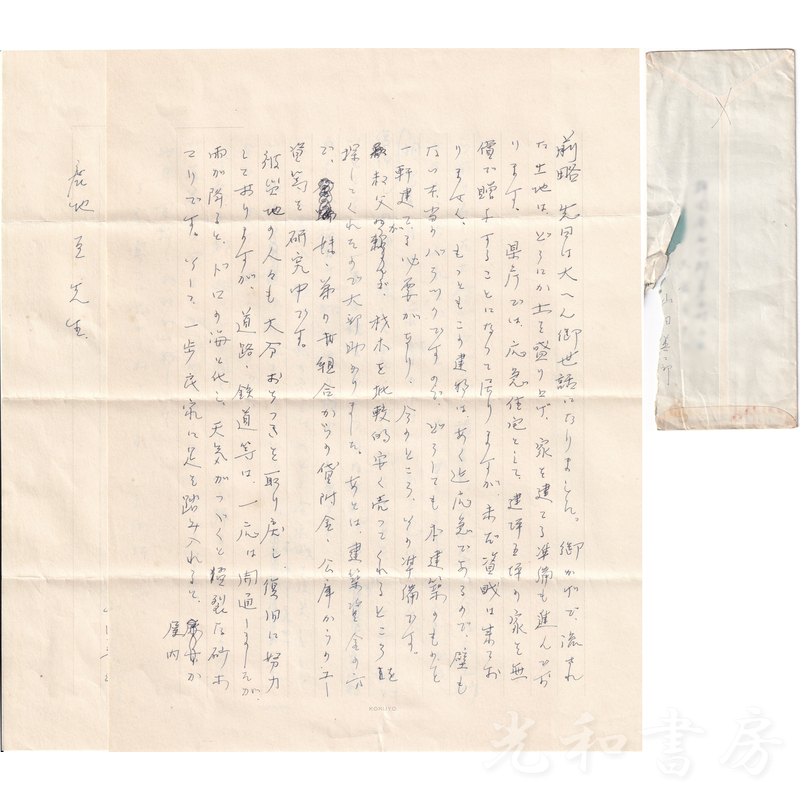 前略 先日は大へん御世話になりました。御かげで、流され
た土地は、どうにか土を盛り上げ、家を建てる準備も進んでお
ります。県庁では、応急住宅として、建坪五坪の家を無
償で贈与することになって居りますが、未だ資材は来てお
りません。もっともこの建物は、あく迄応急であるので、壁も
ない木寄のバラックですので、どうしても本建築のものを
一軒建てる必要があり、今のところ、その準備です。
叔父が 材木を比較的安く売ってくれるところを
探してくれたので大部助かりました。あとは、建築資金の方
で、妹、弟の 組合からの貸附金、公庫からの
資等を研究中です。
被災地の人々も大分おちつきを取り戻し、復旧に努力
しておりますが、道路・鉄道等は、一応は開通しましたが、
雨が降ると、ドロの海と化し、天気がつゞくと 砂ぼ
こりです。そして、一歩民家に足を踏み入れると、 が
屋内
鹿地亘先生
KOKUYO
山田善
光和書房